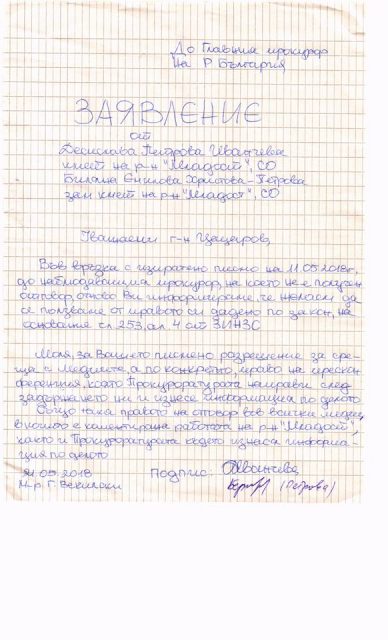 До Главния прокурор
на Р България
ЗАЯВЛЕНИЕ
от
Десислава Петрова Иванчева
кмет на р-н "Младост", СО
Биляна Емилова Христова-Петрова
зам кмет на р-н "Младост", СО
Уважаеми г-н Цацаров,
Във връзка с изпратено писмо на 11.05.2018г.
до наблюдаващия прокурор, на което не е получен
отговор, отново Ви информираме, че желаем да
се ползваме от правото си дадено по закон, на
основание чл 253, ал. 4 от ЗИНЗС
Моля, за Вашето писмено разрешение за сре-
ща с медиите, а по конкретно, право на прескон
ференция, която Прокуратурата направи след
задържането ни и изнесе информация по делото
Също така правото на отговор във всички медии,
в които е коментирана работата на р-н "Младост",
както и Прокуратурата където изнася информа-
ция по делото
21.05.2018
Подпис: Иванчева
(Петрова)